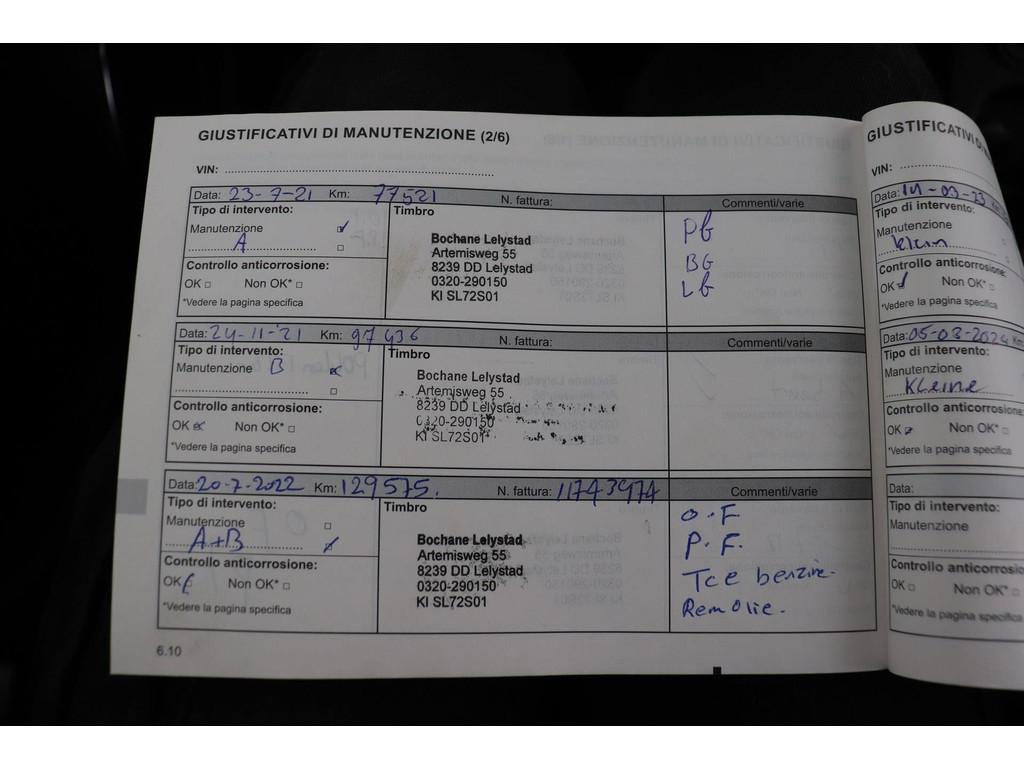 GIUSTIFICATIVI DI MANUTENZIONE (2/6)
VIN:
Data: 23-7-21 Km: 77521 N. fattura: Commenti/varie
Tipo di intervento:
Manutenzione
A
Controllo anticorrosione:
OK Non OK*
*Vedere la pagina specifica
Timbro
Bochane Lelystad
Artemisweg 55
8239 DD Lelystad
0320-290150
KI SL72S01
Pb
BG
Lb
Data: 24-11-21 Km: 97436 N. fattura: Commenti/varie
Tipo di intervento:
Manutenzione B
Controllo anticorrosione:
OK Non OK*
*Vedere la pagina specifica
Timbro
Bochane Lelystad
Artemisweg 55
8239 DD Lelystad
0320-290150
KI SL72S01
Data: 20-7-2022 Km: 129575. N. fattura: 11743974 Commenti/varie
Tipo di intervento:
Manutenzione
A+B
Controllo anticorrosione:
OK Non OK*
*Vedere la pagina specifica
Timbro
Bochane Lelystad
Artemisweg 55
8239 DD Lelystad
0320-290150
KI SL72S01
O.F
P.F.
Tce benzine.
Remolie.
6.10
GIUSTIFICATIVI
VIN:
Data: 14-03-23
Tipo di intervento:
Manutenzione
klein
Controllo anticorrosione:
OK Non OK*
*Vedere la pagina specifica
Data: 05-03-2024 Km
Tipo di intervento:
Manutenzione
Kleine
Controllo anticorrosione
OK Non OK*
*Vedere la pagina specifica
Data:
Tipo di intervento:
Manutenzione
Controllo anticorrosio
OK Non OK*
*Vedere la pagina specifica